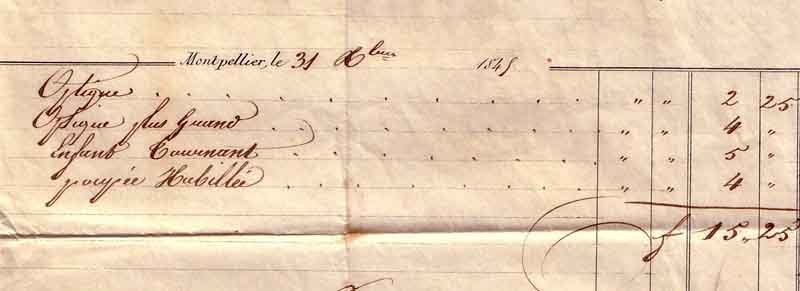 Montpellier, le 31 Xbre 1845
Optique . . . . . . . . . . " " 2 25
Optique plus Grand . . . . . . . " " 4 "
Enfant Tournant . . . . . . . " " 5 "
poupée Habillée . . . . . . . " " 4 "
f 15 " 25